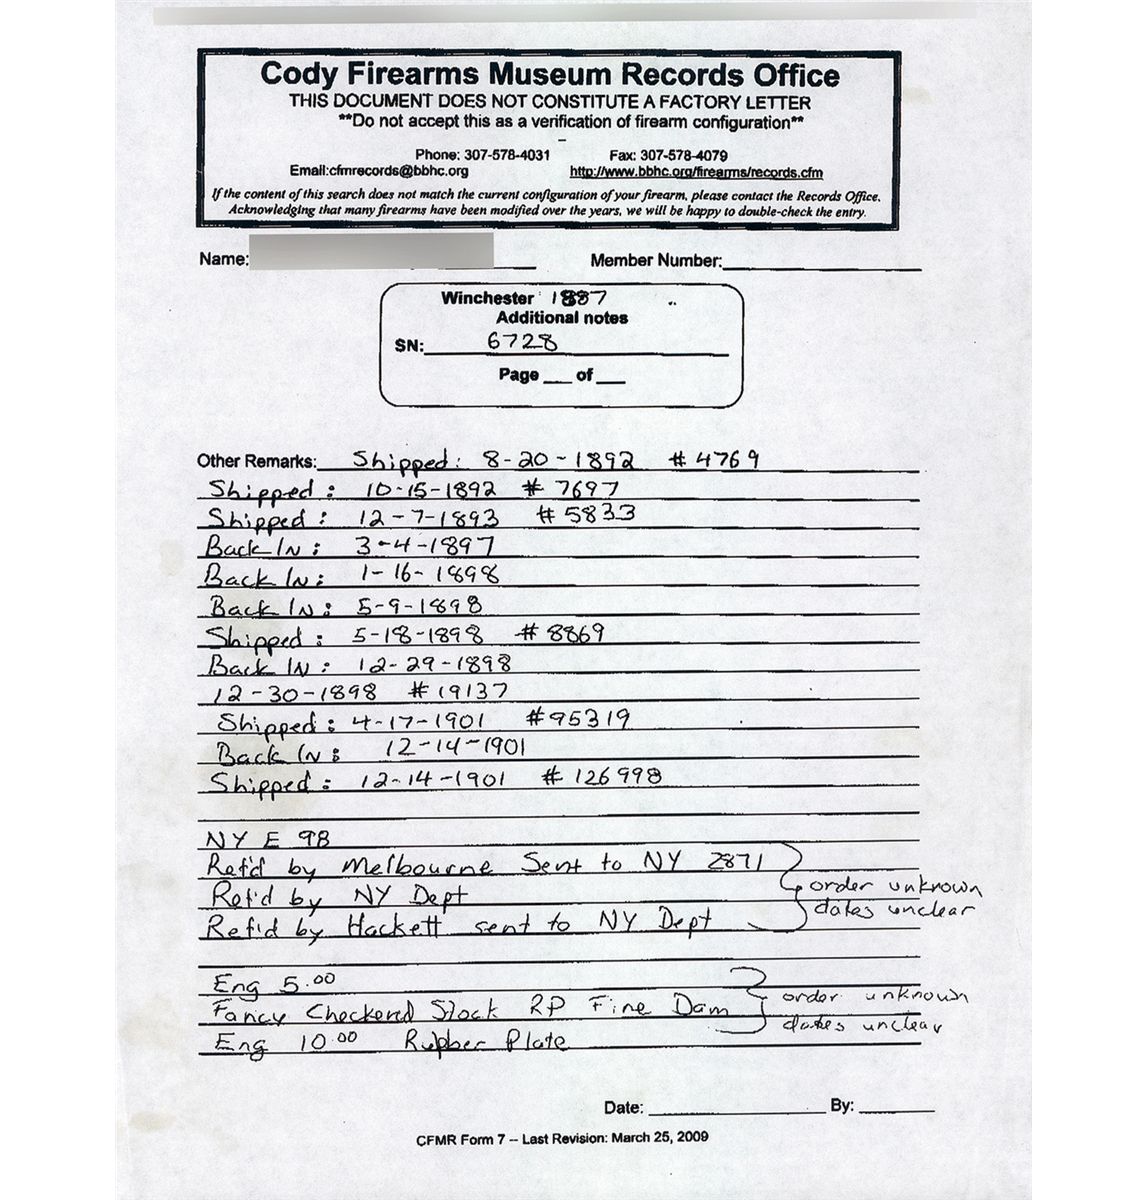 Cody Firearms Museum Records Office
THIS DOCUMENT DOES NOT CONSTITUTE A FACTORY LETTER
**Do not accept this as a verification of firearm configuration**
Phone: 307-578-4031 Fax: 307-578-4079
Email:cfmrecords@bbhc.org http://www.bbhc.org/firearms/records.cfm
If the content of this search does not match the current configuration of your firearm, please contact the Records Office.
Acknowledging that many firearms have been modified over the years, we will be happy to double-check the entry.
Name: Member Number:
Winchester 1887
Additional notes
SN: 6728
Page ___ of ___
Other Remarks: Shipped: 8-20-1892 #4769
Shipped: 10-15-1892 #7697
Shipped: 12-7-1893 #5833
Back In: 3-4-1897
Back In: 1-16-1898
Back In: 5-9-1898
Shipped: 5-18-1898 #8869
Back In: 12-29-1898
12-30-1898 #19137
Shipped: 4-17-1901 #95319
Back In: 12-14-1901
Shipped: 12-14-1901 #126998
NY E 98
Ret'd by Melbourne Sent to NY 2871
Ret'd by NY Dept order unknown
Ret'd by Hackett sent to NY Dept dates unclear
Eng 5.00
Fancy Checkered Stock RP Fine Dam order unknown
Eng 10.00 Rubber Plate dates unclear
Date: By:
CFMR Form 7 -- Last Revision: March 25, 2009